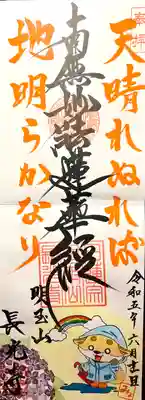 奉拝
天晴れぬれば
南無妙法蓮華経
地明らかなり
令和五年六月吉日
明玉山
長光寺